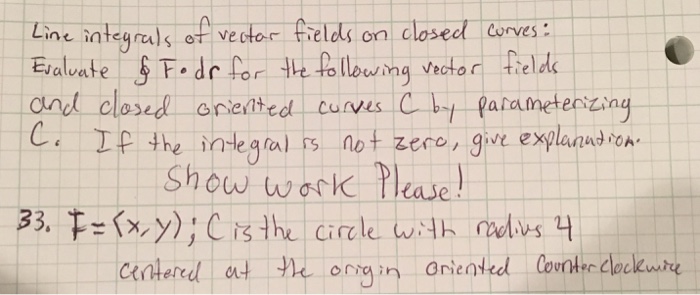 Line integrals of vector fields on closed curves:
Evaluate ∮ F•dr for the following vector fields
and closed oriented curves C by parameterizing
C. If the integral is not zero, give explanation.
Show work Please!
33. F = ⟨x,y⟩; C is the circle with radius 4
centered at the origin oriented Counterclockwise